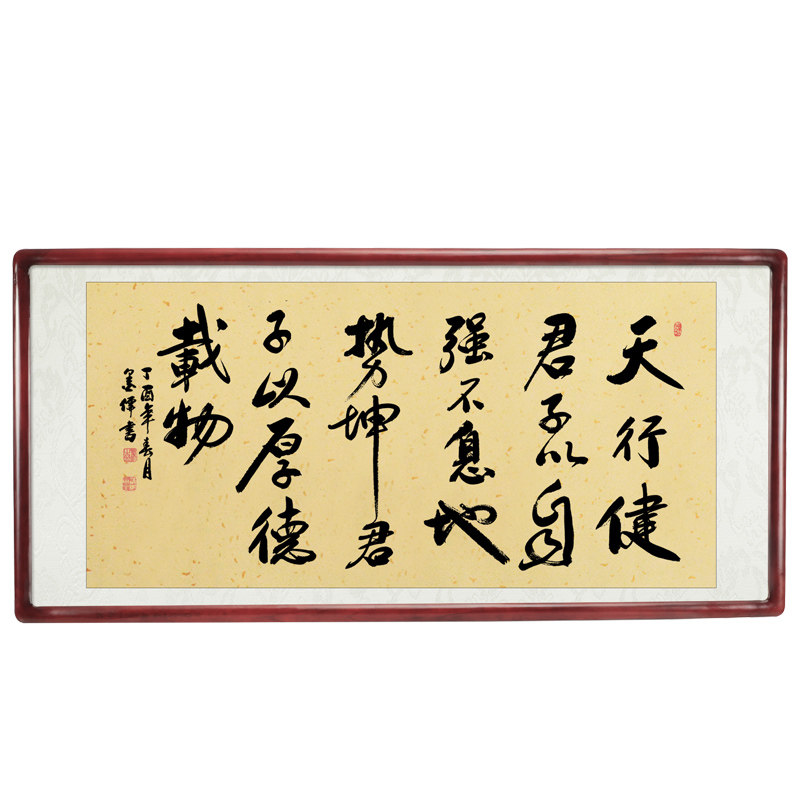 天行健
君子以自
强不息地
势坤君
子以厚德
載物
丁酉年春月
書